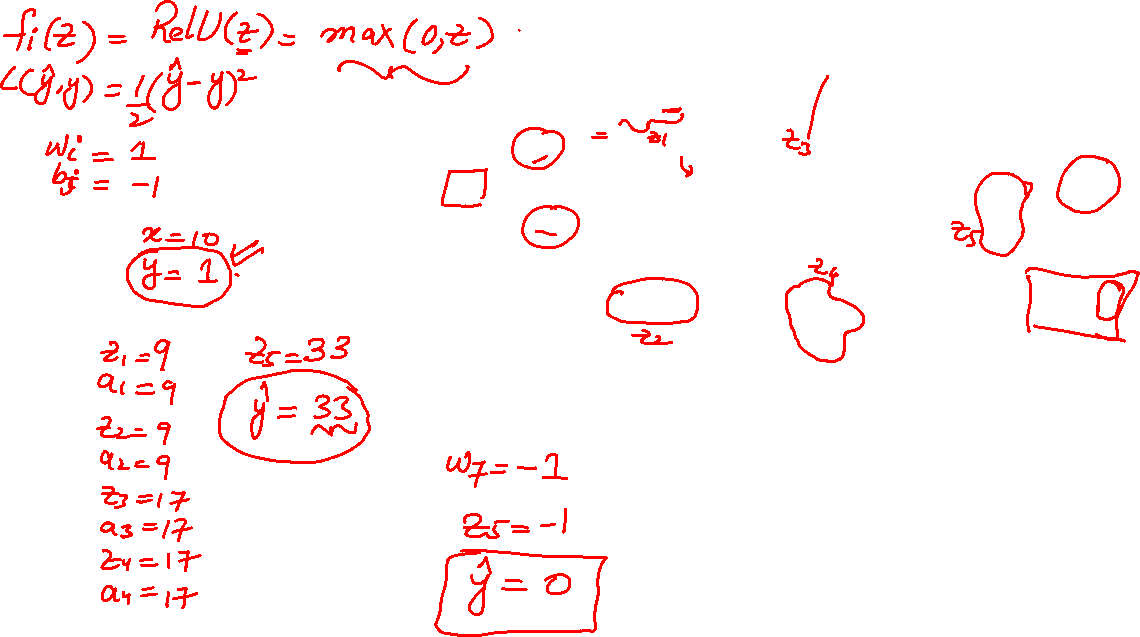 fi(z) = RelU(z) = max(0,z)
L(ŷ,y) = 1/2(ŷ-y)²
wi = 1
bj = -1
x=10
y=1
z1=9
a1=9
z2=9
a2=9
z3=17
a3=17
z4=17
a4=17
z5=33
ŷ=33
= z1
z2
z3
z4
z5
w7=-1
z5=-1
ŷ=0